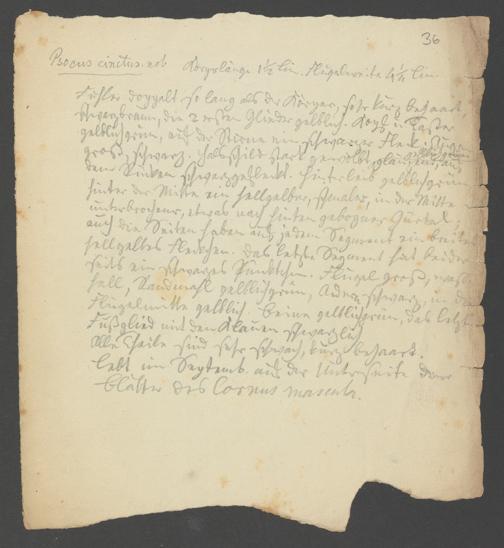 36
Psocus cinctus nob Körperlänge 1½ Lin. Flügelweite 4¼ Lin
Fühler doppelt so lang als der Körper, sehr kurz behaart
schwarzbraun, die 2 ersten Glieder gelblich. Kopf u Taster
gelblichgrün, auf der Stirne ein schwarzer Fleck. Augen
groß, schwarz. Halsschild stark gewölbt, glänzend, auf
dem Rücken schwarzgefleckt. Hinterleib gelblichgrün
hinter der Mitte ein hellgelber, schmaler, in der Mitte
unterbrochener, etwas nach hinten gebogner Gürtel,
auch die Seiten haben auf jedem Segment ein breites
hellgelbes Fleckchen. Das letzte Segment hat beider-
seits ein schwarzes Pünktchen. Flügel groß,
hell, Randmahl gelblichgrün, Adern schwarz, in der
Flügelmitte gelblich. Beine gelblichgrün, das letzte
Fußglied mit den Klauen schwärzlich
Alle Theile sind sehr schwach, kurz behaart.
Lebt im Septemb. auf der Unterseite der
Blätter des Cornus mascula.